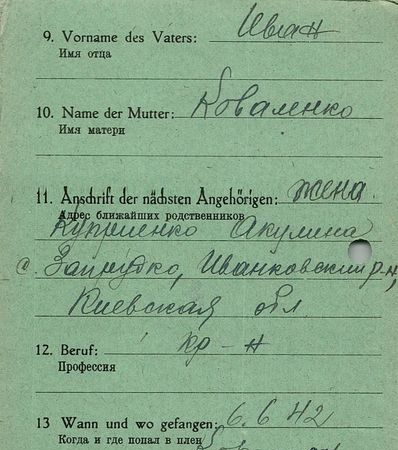 9. Vorname des Vaters: Иван
Имя отца
10. Name der Mutter: Коваленко
Имя матери
11. Anschrift der nächsten Angehörigen: жена
Адрес ближайших родственников
Куприенко Акулина
с. Запрудко, Иванковский р-н,
Киевская обл
12. Beruf: кр-н
Профессия
13 Wann und wo gefangen: 6.6 42
Когда и где попал в плен